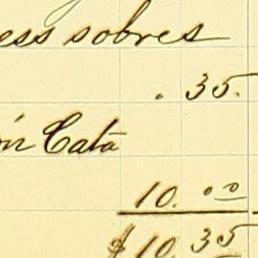 ess sobres
. 35.
ón Catá
10. 00
$ 10 35